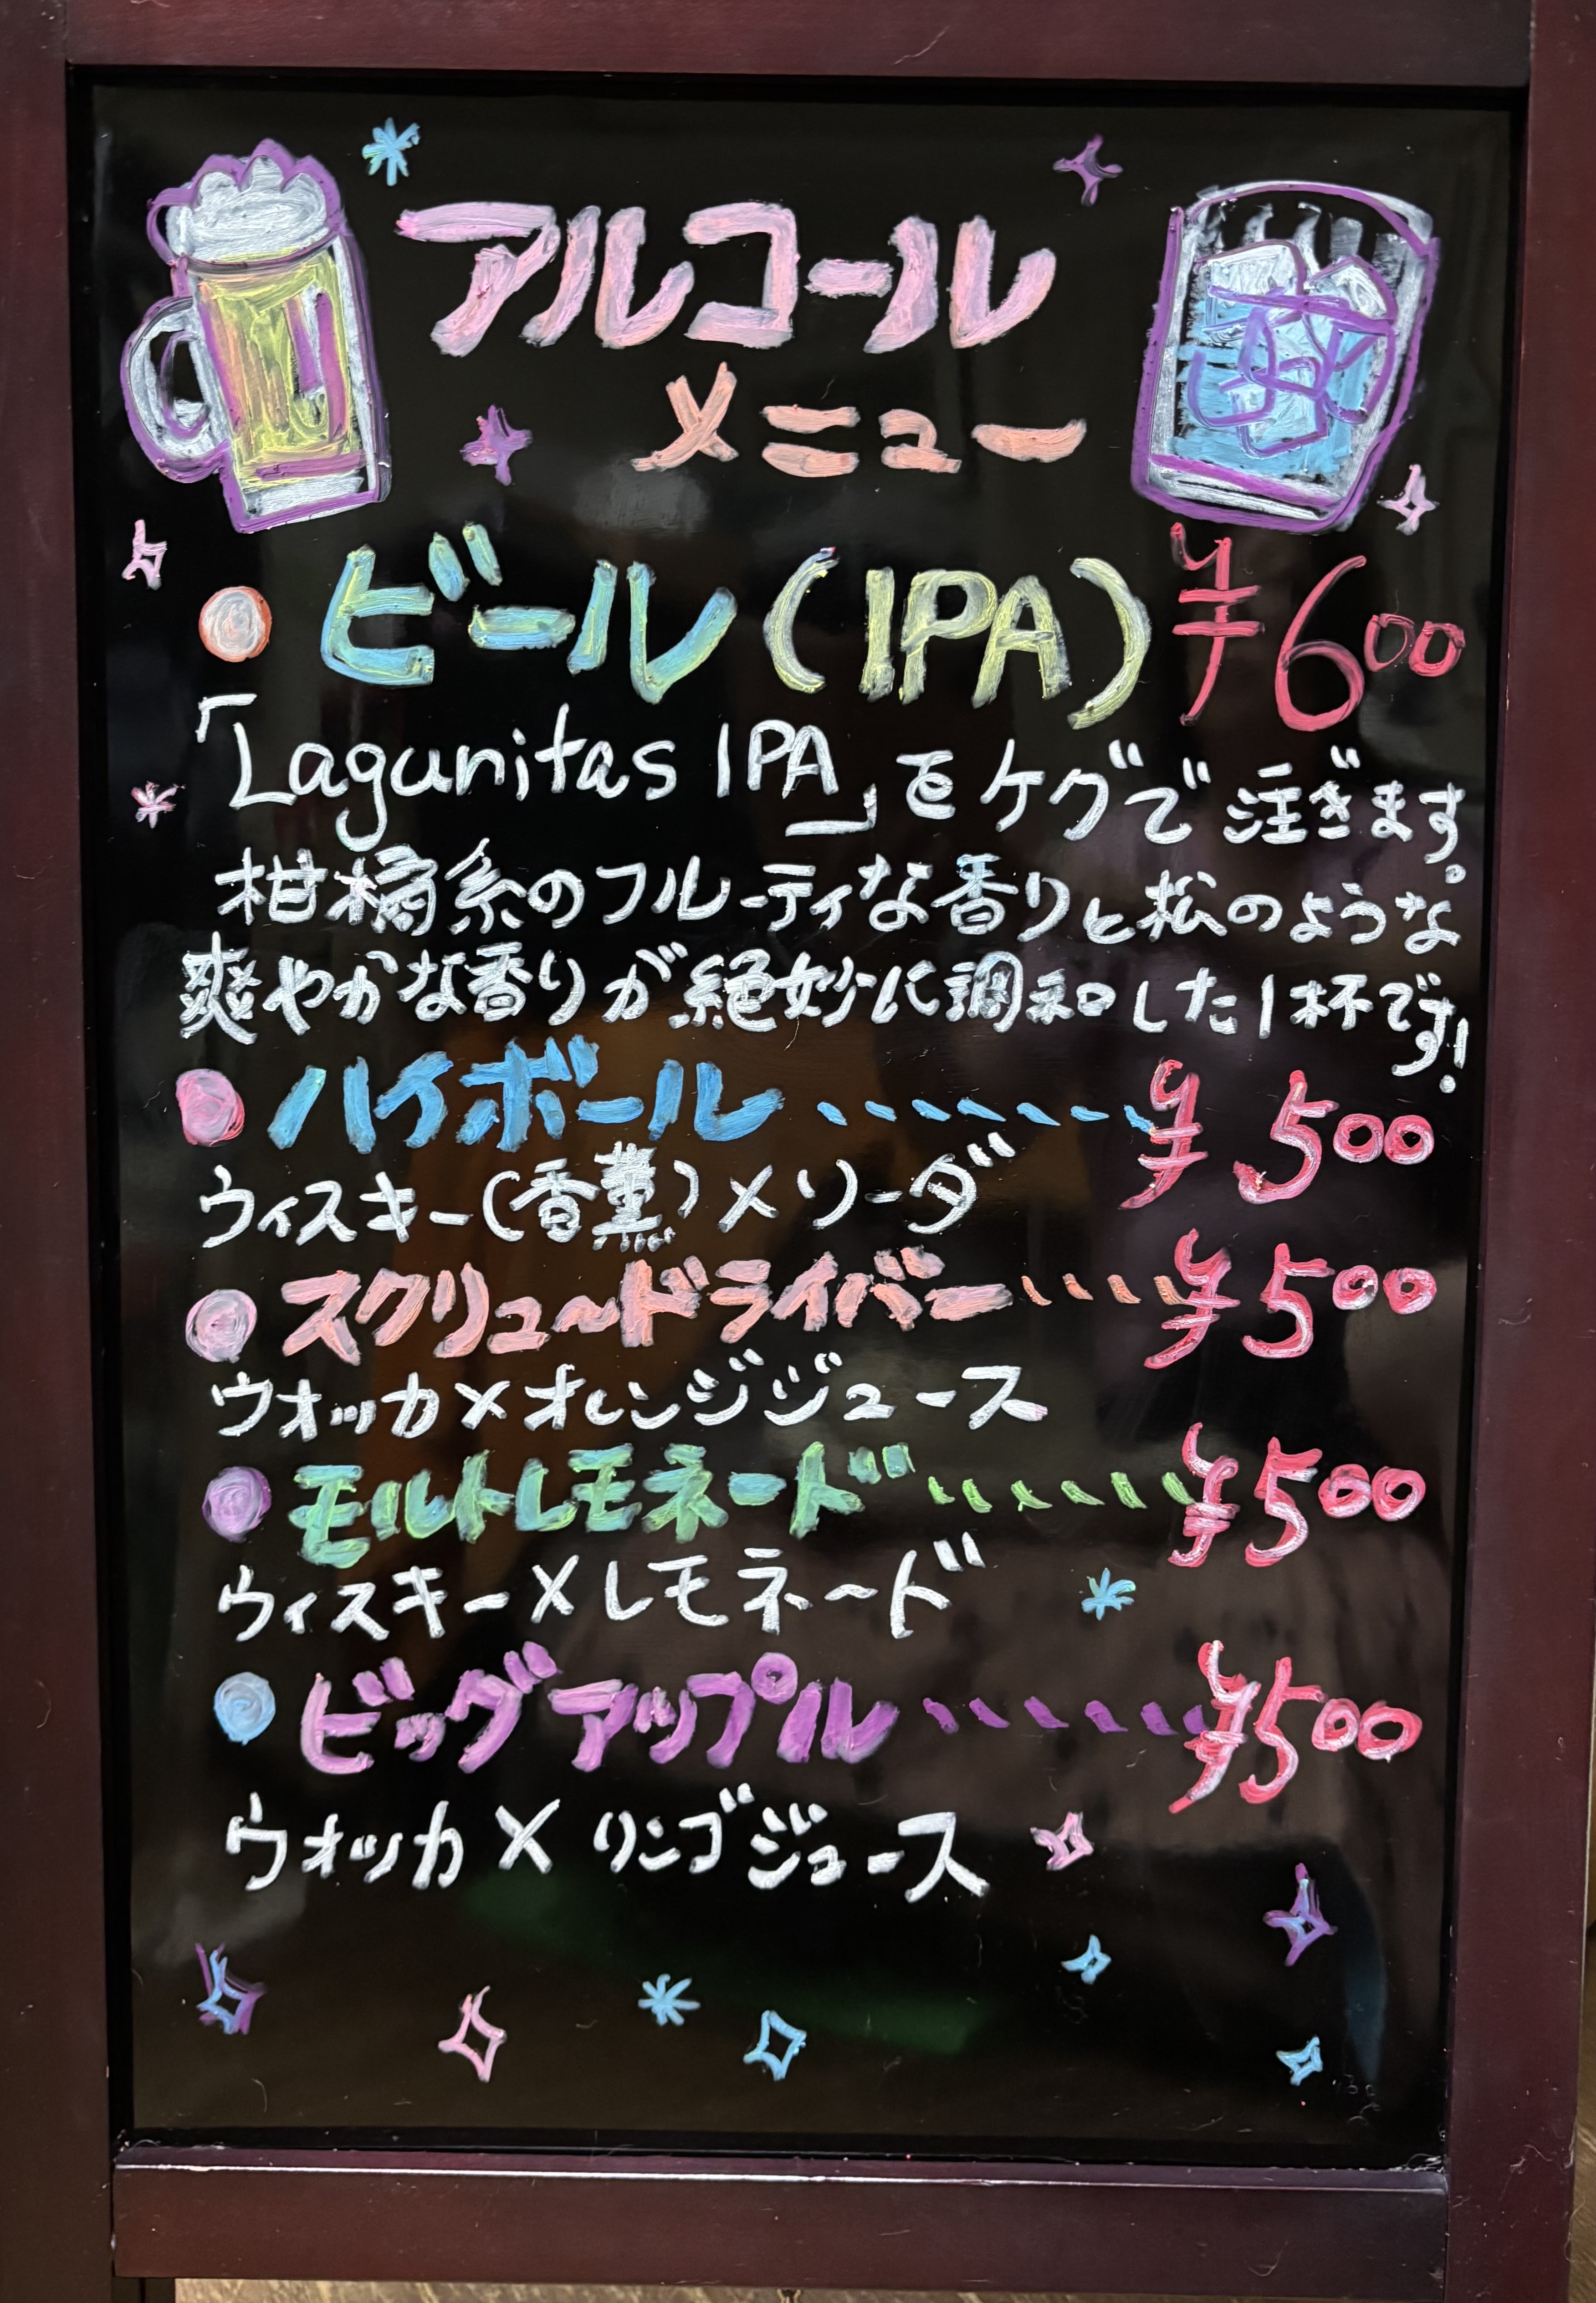 アルコール
メニュー
ビール(IPA) ¥600
「Lagunitas IPA」をケグで注ぎます。
柑橘系のフルーティな香りと松のような
爽やかな香りが絶妙に調和した1杯です!
ハイボール ¥500
ウィスキー(香薫)×ソーダ
スクリュ〜ドライバー ¥500
ウオッカ×オレンジジュース
モルトレモネード ¥500
ウィスキー×レモネ〜ド
ビッグアップル ¥500
ウオッカ×リンゴジュース